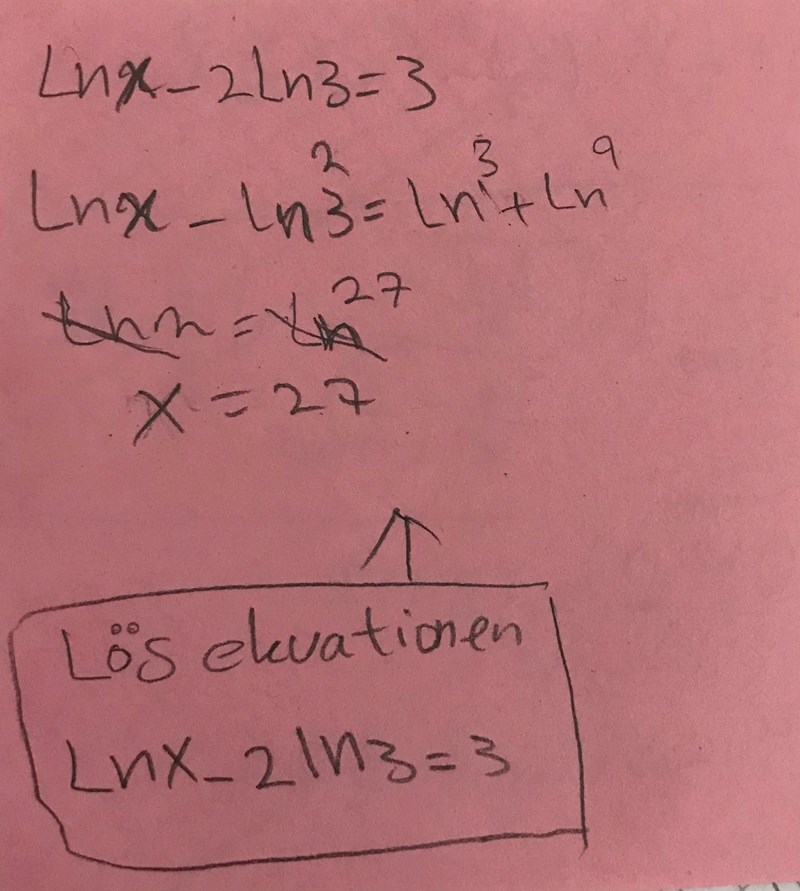 Lnx - 2Ln3 = 3
Lnx - Ln3² = Ln³ + Ln⁹
Lnx = Ln²⁷
x = 27
Lös ekvationen
Lnx - 2ln3 = 3